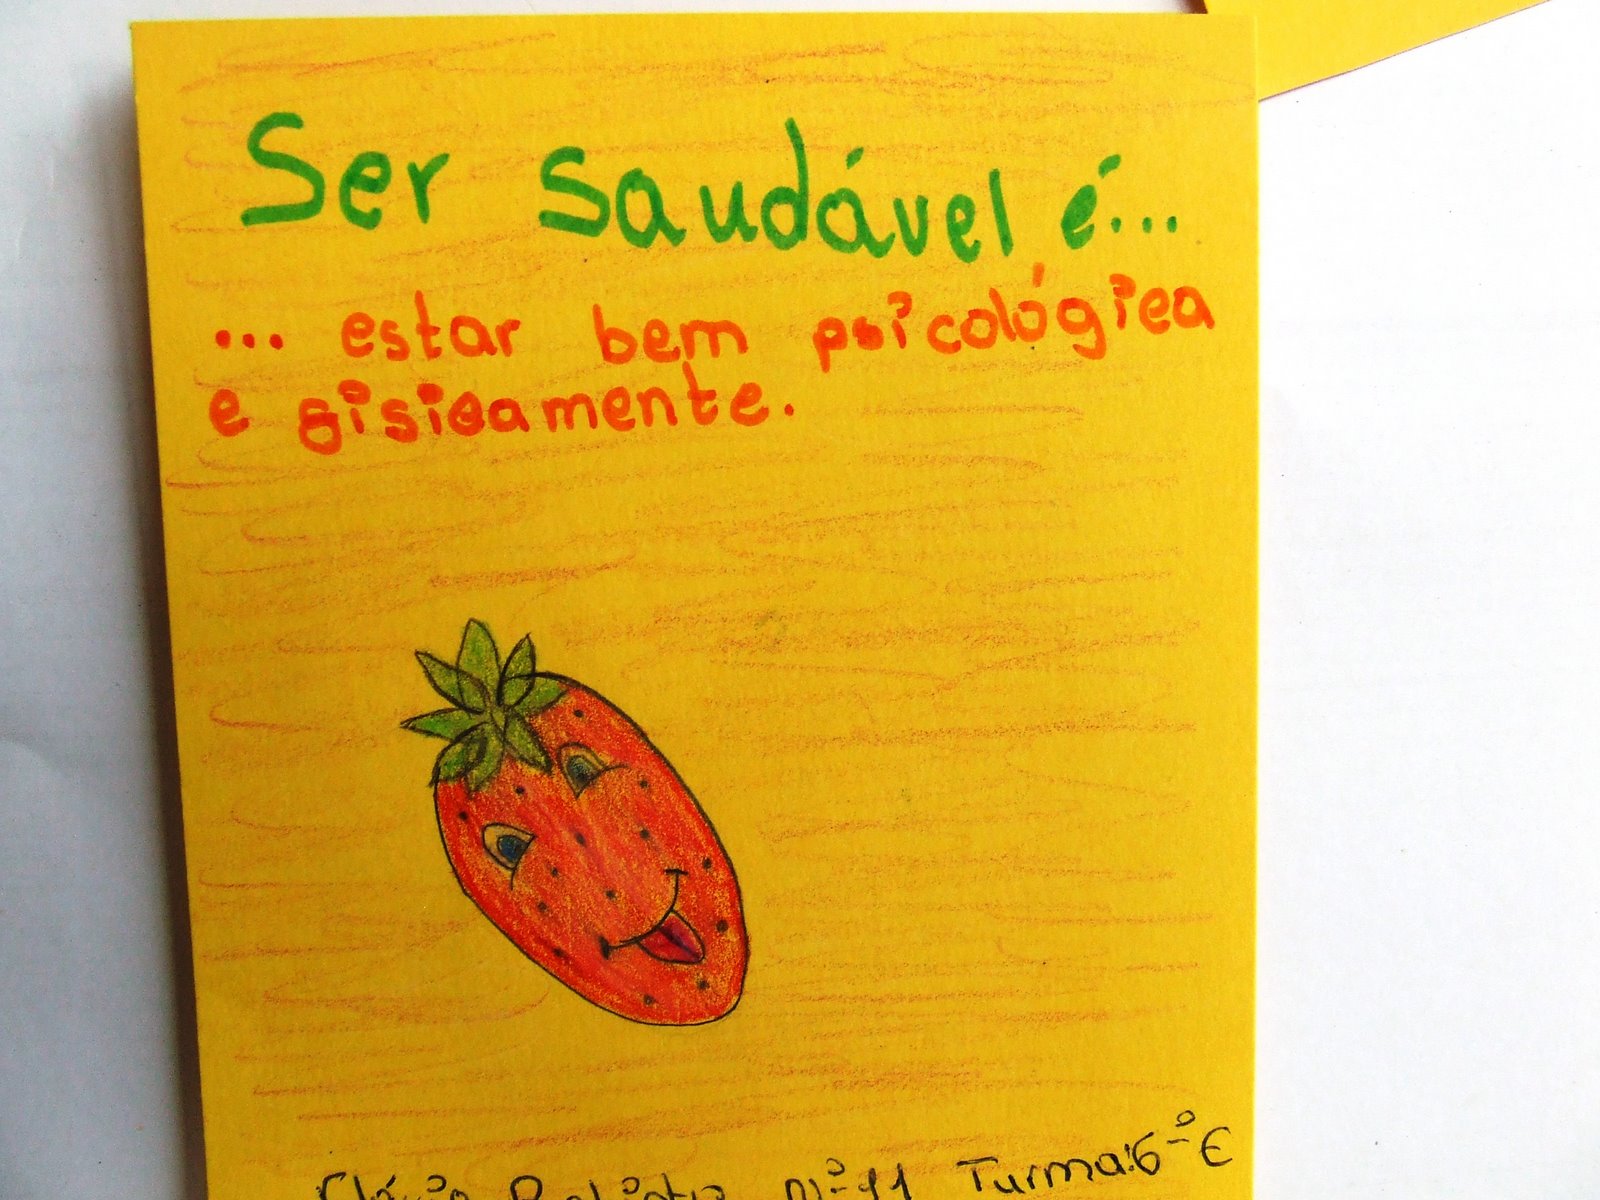 Ser saudável é...
... estar bem psicológica
e fisicamente.
nº 11 Turma: 6º E